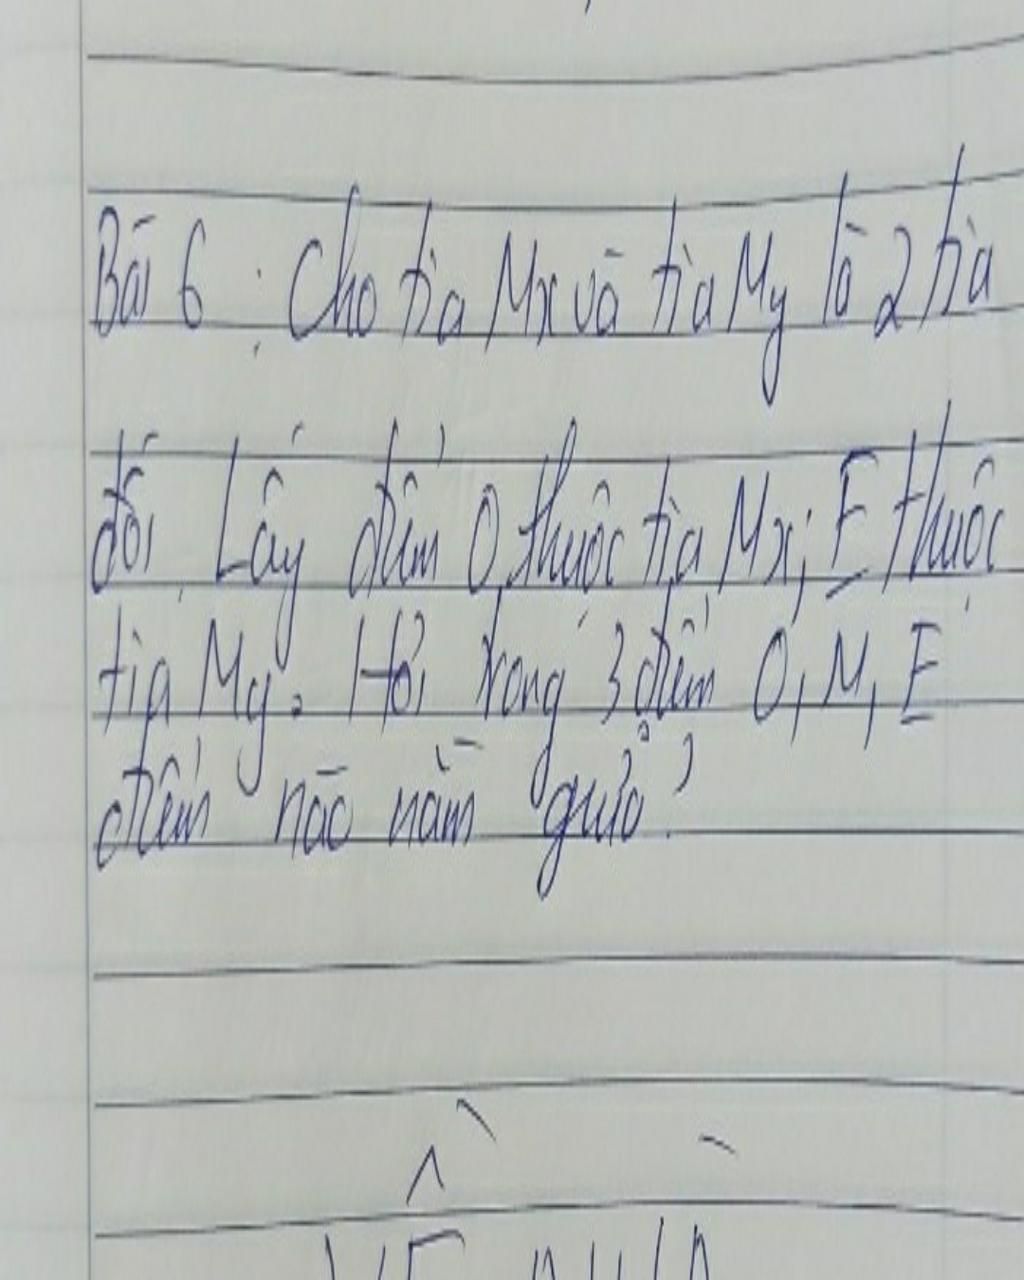 Bài 6: Cho tia Mx và tia My là 2 tia
đối. Lấy điểm O thuộc tia Mx; E thuộc
tia My. Hỏi trong 3 điểm O, M, E
điểm nào nằm giữa?
VỀ NHÀ